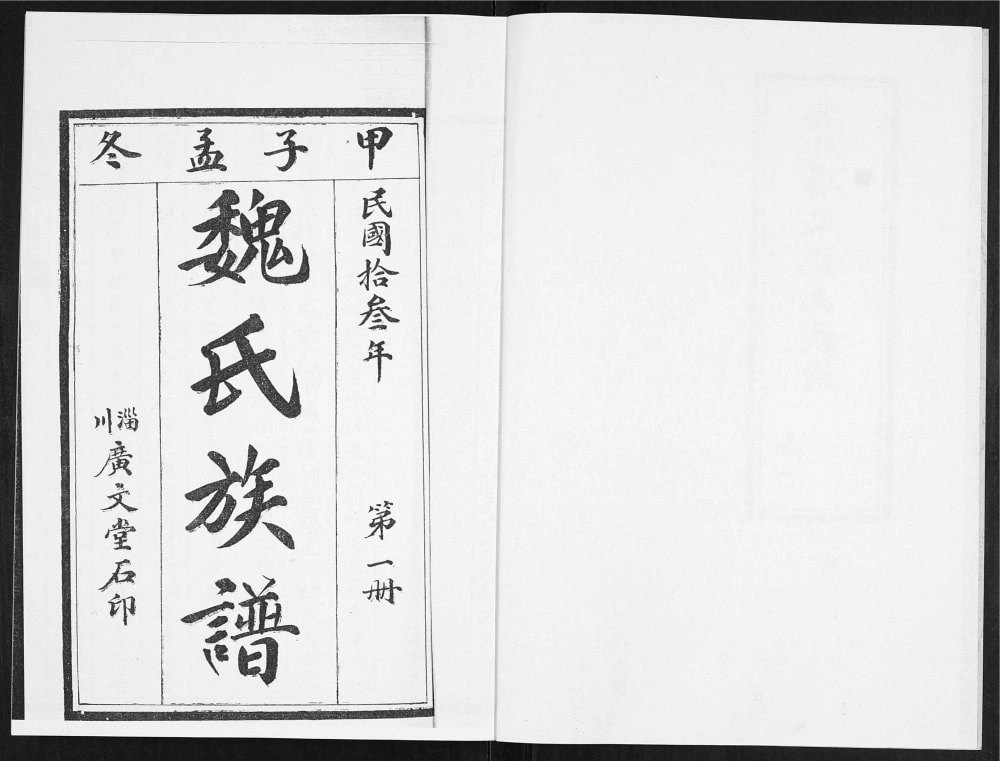 甲子孟冬
民國拾叁年 第一册
魏氏族譜
淄川廣文堂石印